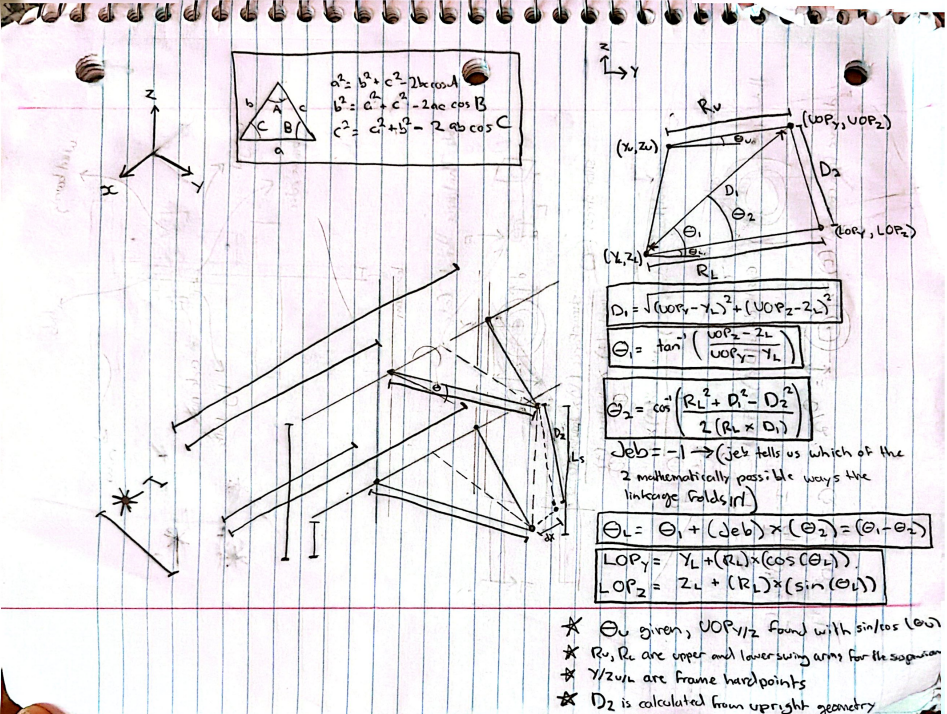 a² = b² + c² - 2bc cos A
b² = c² + c² - 2ac cos B
c² = c² + b² - 2ab cos C
b A c
C B
a
Z
X Y
Z
Y
Rᵤ
(Yᵤ, Zᵤ)
θᵤ
(UOPY, UOPZ)
D₁
D₂
θ₂
θ₁
(LOPY, LOPZ)
(YL, ZL)
θL
RL
D₁ = √(UOPY - YL)² + (UOPZ - ZL)²
θ₁ = tan⁻¹(UOPZ - ZL / UOPY - YL)
θ₂ = cos⁻¹(RL² + D₁² - D₂² / 2(RL × D₁))
Jeb = -1 → (jeb tells us which of the
2 mathematically possible ways the
linkage folds in)
θL = θ₁ + (Jeb) × (θ₂) = (θ₁ - θ₂)
LOPY = YL + (RL) × (cos(θL))
LOPZ = ZL + (RL) × (sin(θL))
θ
D₂
Ls
dx
* θᵤ given, UOPY/Z found with sin/cos (θᵤ)
* Rᵤ, RL are upper and lower swing arms for the suspension
* Y/Zᵤ/L are frame hardpoints
* D₂ is calculated from upright geometry